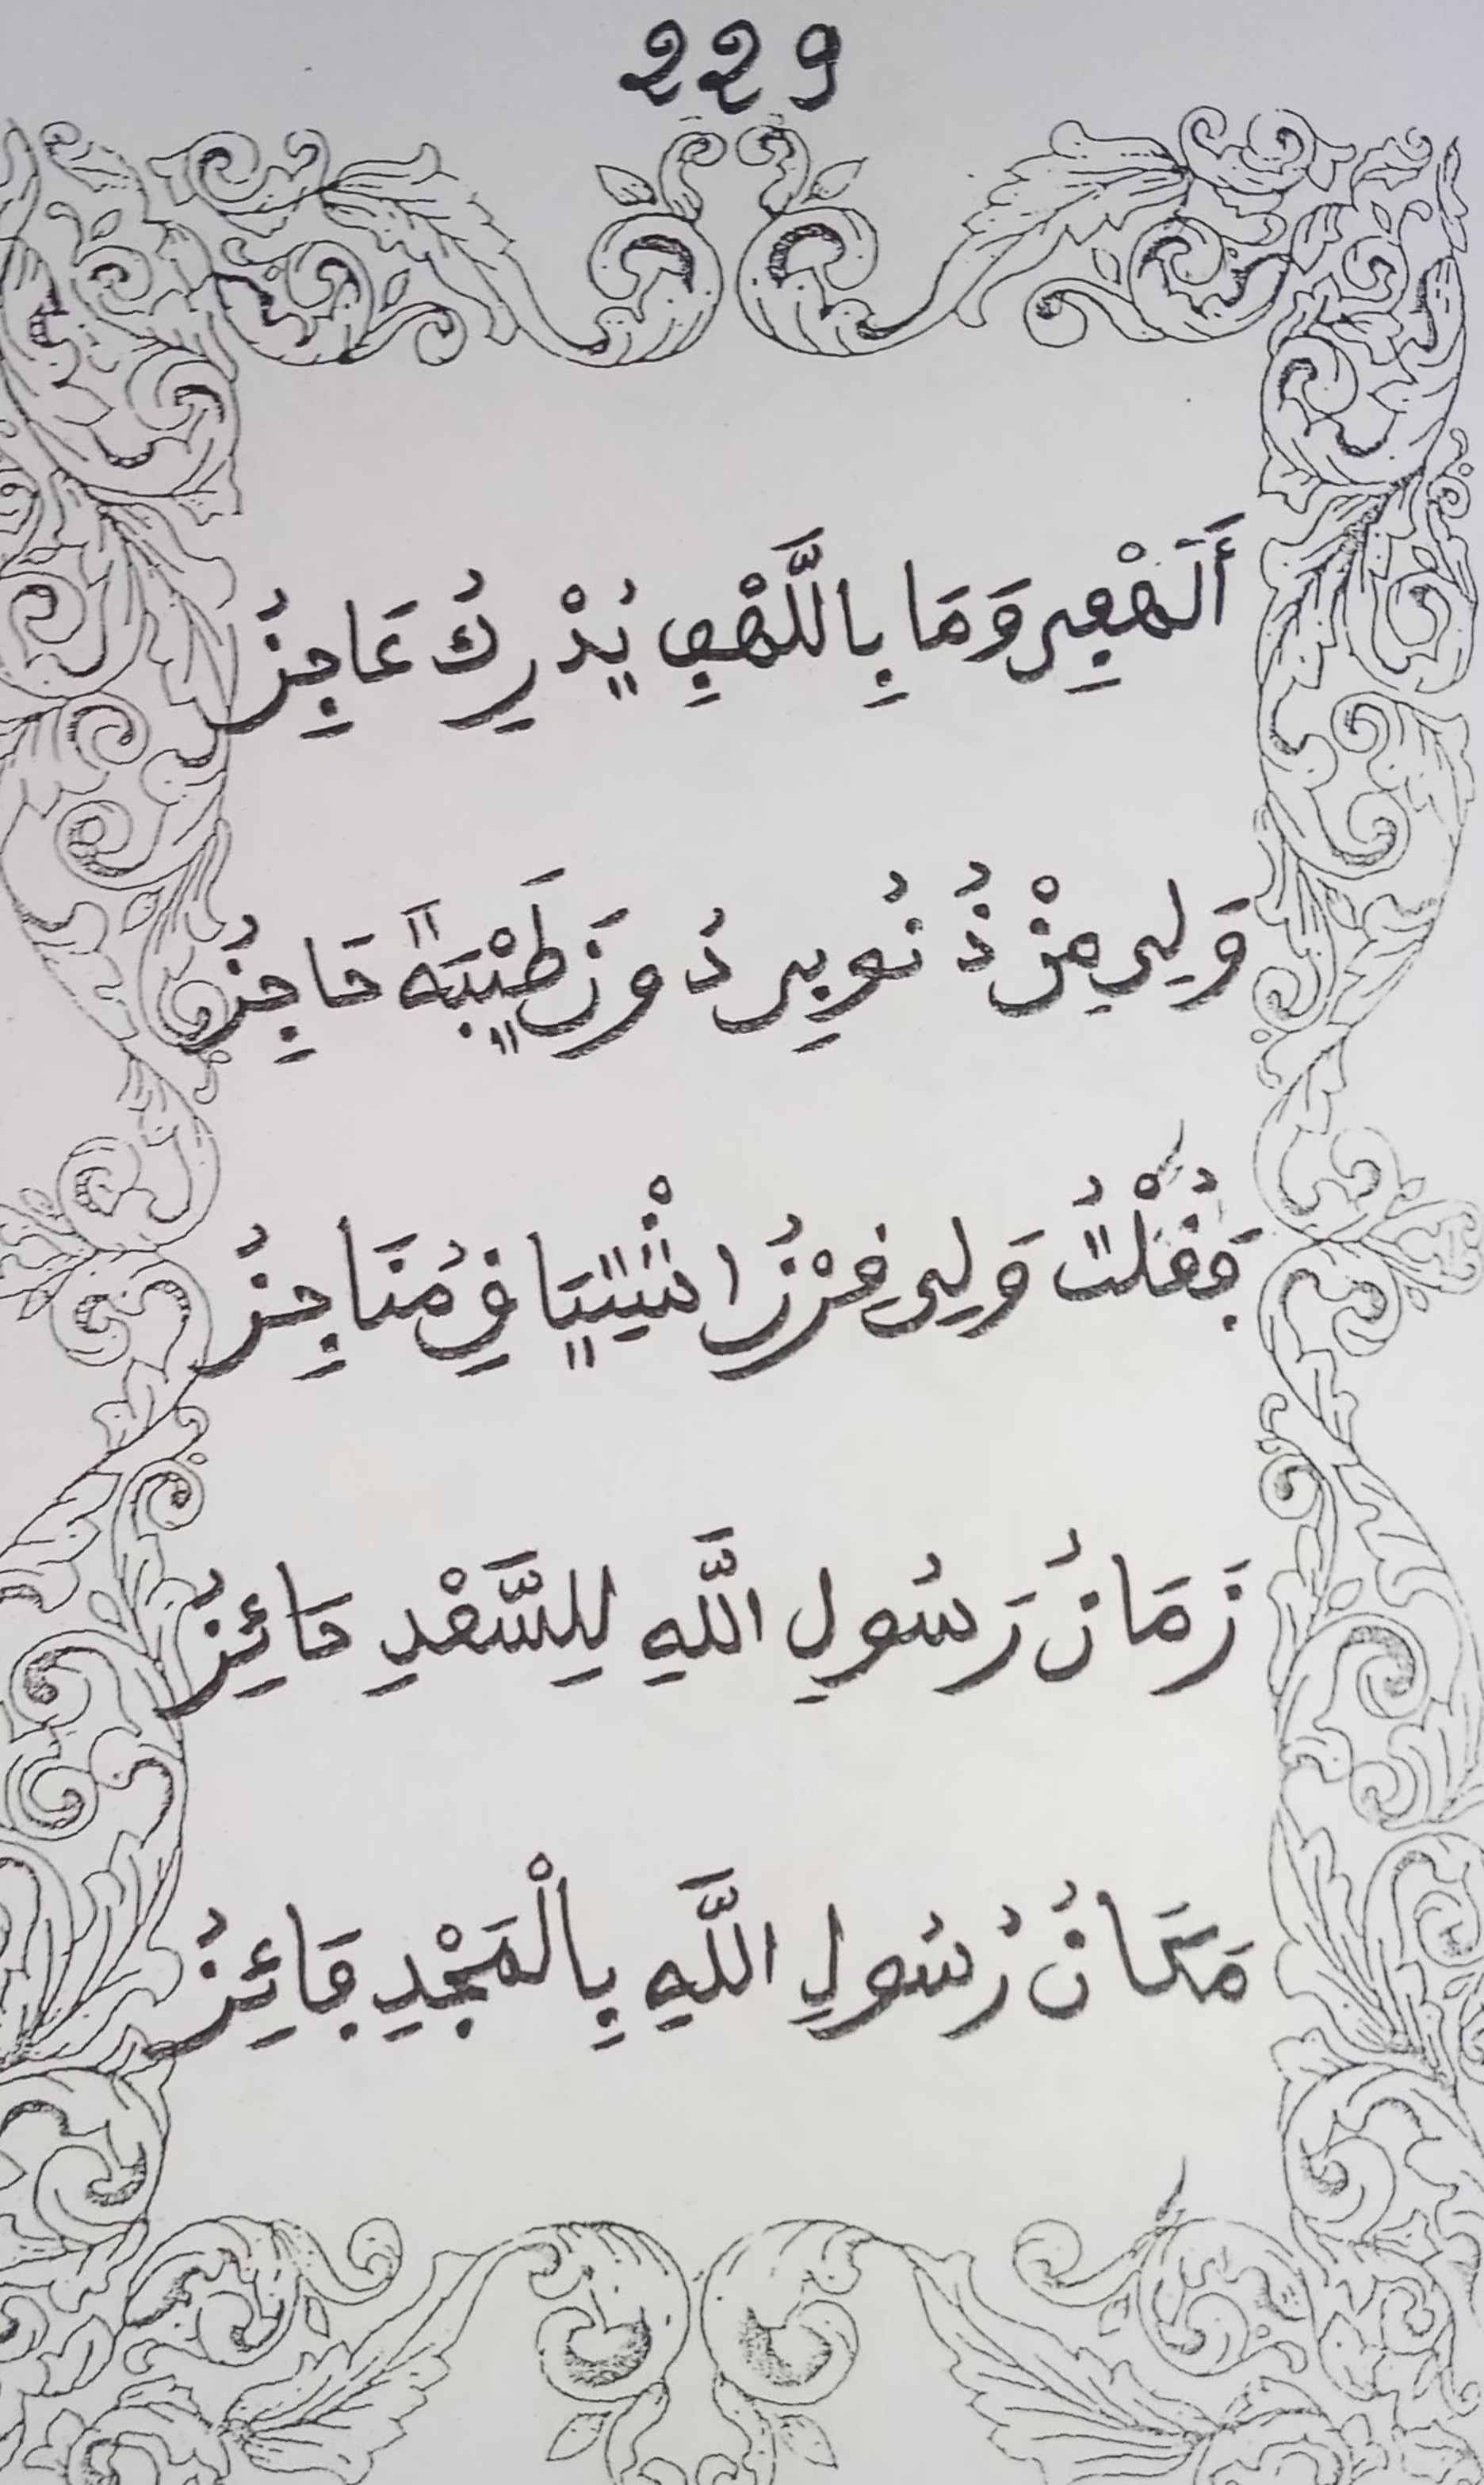 229
أَلَهْفِي وَمَا بِاللَّهْفِ يُدْرِكُ عَاجِزُ
وَلِي مِنْ ذُنُوبِي دُونَ طَيْبَةَ حَاجِزُ
فَقُلْتُ وَلِي قِرْنُ اشْتِيَاقٍ مُنَاجِزُ
زَمَانُ رَسُولِ اللَّهِ لِلسَّعْدِ حَائِزُ
مَكَانُ رَسُولِ اللَّهِ بِالْمَجْدِ فَائِزُ